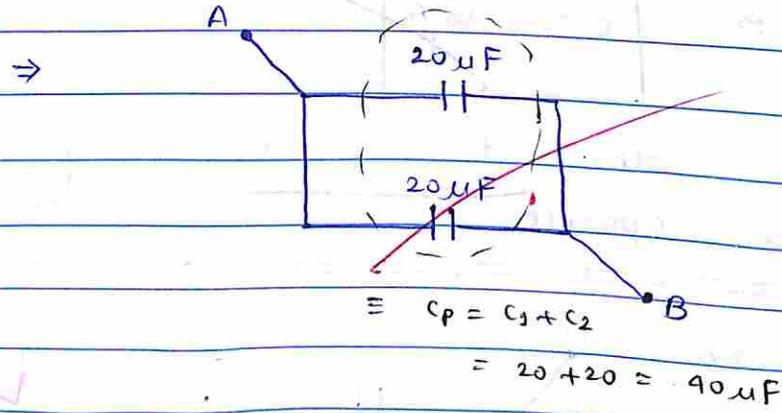 A
⇒
20 μF
20 μF
B
≡ Cp = C1 + C2
= 20 + 20 = 40 μF